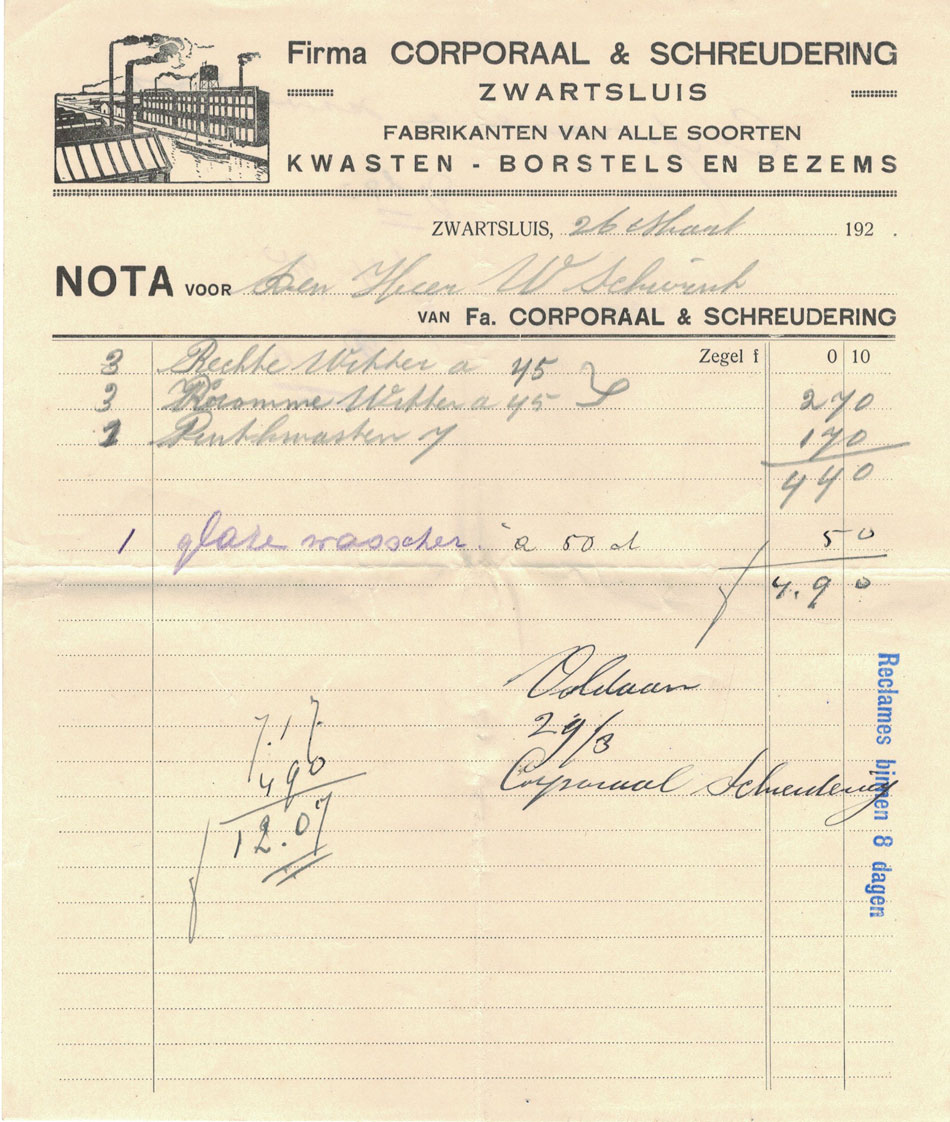 Firma CORPORAAL & SCHREUDERING
ZWARTSLUIS
FABRIKANTEN VAN ALLE SOORTEN
KWASTEN - BORSTELS EN BEZEMS
ZWARTSLUIS, 26 Maart 192 .
NOTA VOOR Den Heer W
VAN Fa. CORPORAAL & SCHREUDERING
Zegel f 0 10
3 Rechte Witter a 45
3 Kromme Witter a 45 270
1 7 170
440
1 glaze wasscher à 50 ct 50
4.90
Voldaan
29/3
Corporaal Schreudering
7.17
490
12.07
Reclames binnen 8 dagen